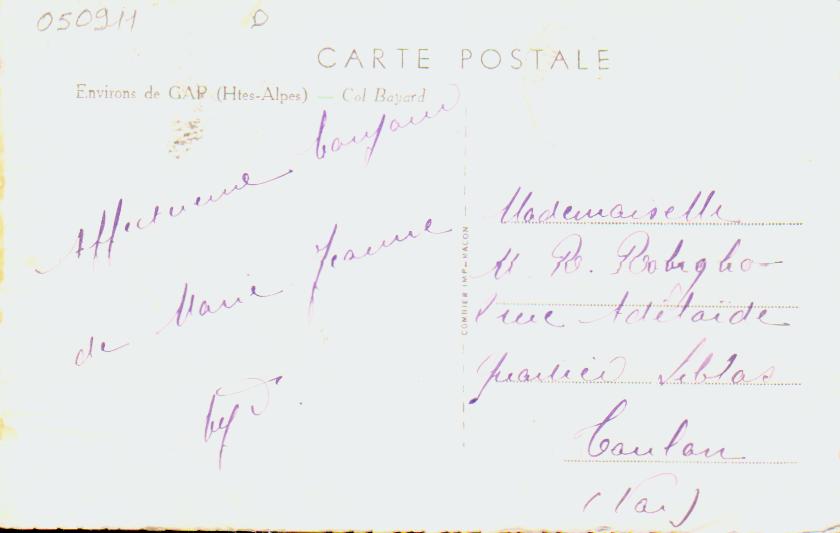 050911
D
CARTE POSTALE
Environs de GAP (Htes-Alpes) — Col Bayard
Affectueux bonjour
de Marie Jeanne
COMBIER IMP-MACON
Mademoiselle
M R.
rue Adélaïde
quartier Siblas
Toulon
(Var)